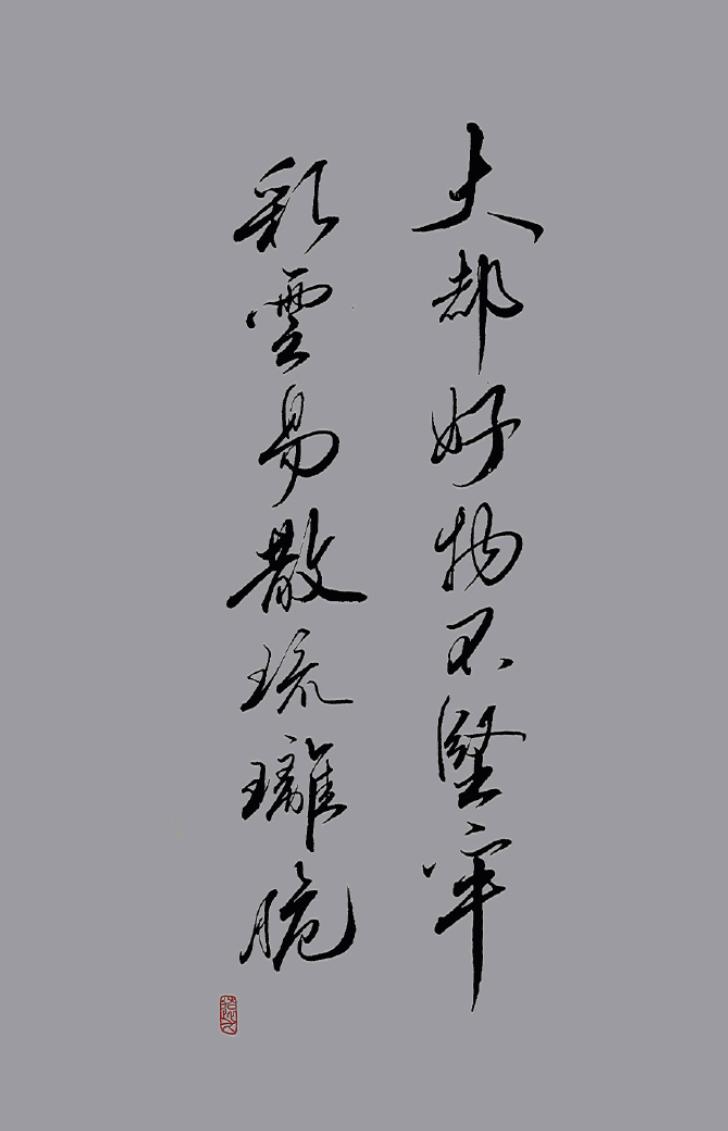 大都好物不堅牢
彩雲易散琉璃脆